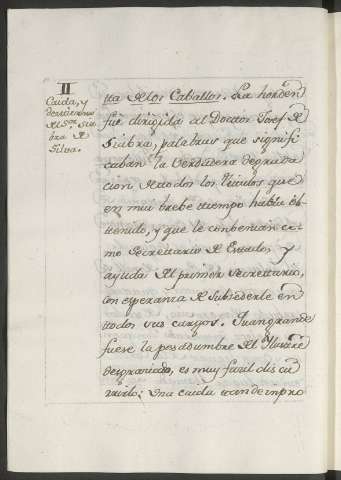 II
Caida, y
destierro
del Sor. Sia
bra de
Silva.
tta de los Caballos. La horden
fue dirigida al Doctor Josef de
Siabra, palabras que signifi
caban la verdadera degrada
cion de todos los titulos que
en mui brebe ttiempo habia ob
tenido, y que le combenian co
mo Secrettario de Estado, y
ayuda del primer Secrettario,
con esperanza de subcederle en
ttodos sus cargos. Quan grande
fuese la pesadumbre del Ilustre
desgraciado, es mui facil discu
rrirlo; Una caida tan de impro